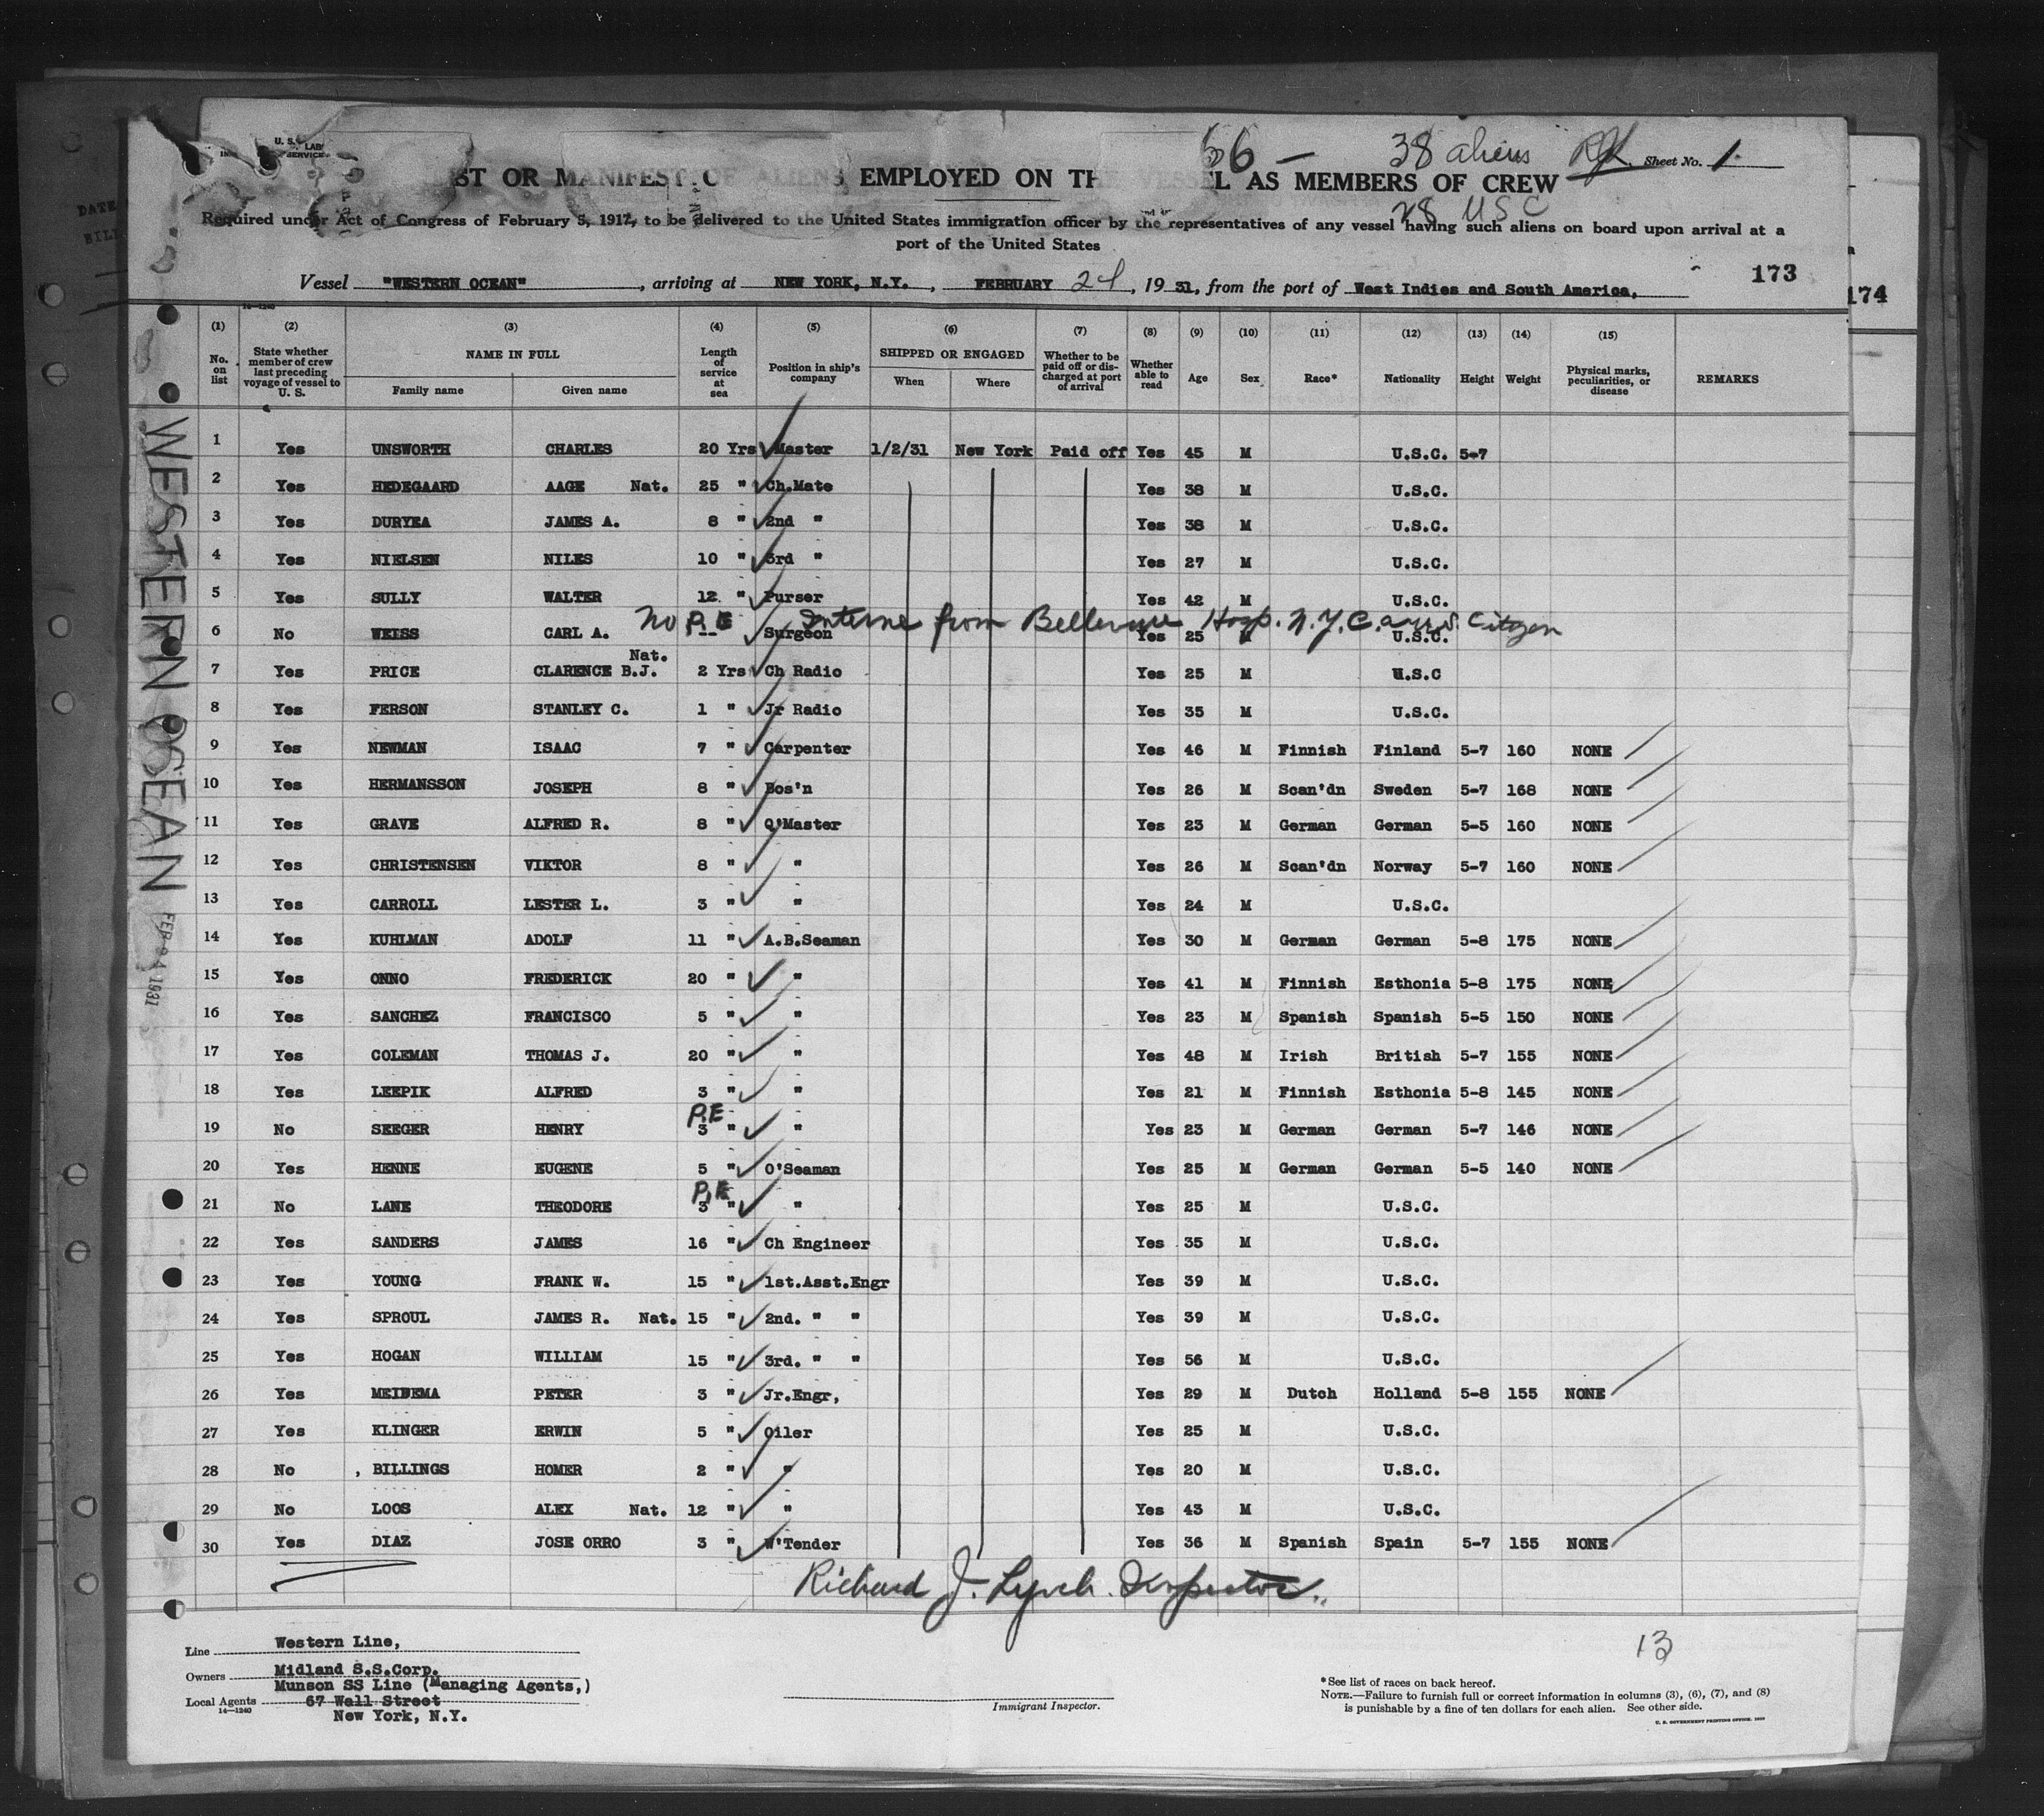 66 — 38 aliens Sheet No. 1
28 USC
ST OR MANIFEST OF ALIENS EMPLOYED ON THE VESSEL AS MEMBERS OF CREW
Required under Act of Congress of February 5, 1917, to be delivered to the United States immigration officer by the representatives of any vessel having such aliens on board upon arrival at a
port of the United States
Vessel "WESTERN OCEAN", arriving at NEW YORK, N.Y., FEBRUARY 24, 1931, from the port of West Indies and South America, 173
174
14—1240
(1) (2) (3) (4) (5) (6) (7) (8) (9) (10) (11) (12) (13) (14) (15)
No. on list | State whether member of crew last preceding voyage of vessel to U. S. | NAME IN FULL | Family name | Given name | Length of service at sea | Position in ship's company | SHIPPED OR ENGAGED | When | Where | Whether to be paid off or discharged at port of arrival | Whether able to read | Age | Sex | Race* | Nationality | Height | Weight | Physical marks, peculiarities, or disease | REMARKS
1 Yes UNSWORTH CHARLES 20 Yrs Master 1/2/31 New York Paid off Yes 45 M U.S.C. 5-7
2 Yes HEDEGAARD AAGE Nat. 25 " Ch.Mate Yes 38 M U.S.C.
3 Yes DURYEA JAMES A. 8 " 2nd " Yes 38 M U.S.C.
4 Yes NIELSEN NILES 10 " 3rd " Yes 27 M U.S.C.
5 Yes SULLY WALTER 12 " Purser Yes 42 M U.S.C.
No P.E Interne from Bellevue Hosp. N.Y.C. a U.S. Citizen
6 No WEISS CARL A. -- Surgeon Yes 25 M U.S.C.
7 Yes PRICE CLARENCE B.J. Nat. 2 Yrs Ch Radio Yes 25 M U.S.C
8 Yes FERSON STANLEY C. 1 " Jr Radio Yes 35 M U.S.C.
9 Yes NEWMAN ISAAC 7 " Carpenter Yes 46 M Finnish Finland 5-7 160 NONE
10 Yes HERMANSSON JOSEPH 8 " Bos'n Yes 26 M Scan'dn Sweden 5-7 168 NONE
11 Yes GRAVE ALFRED R. 8 " Q'Master Yes 23 M German German 5-5 160 NONE
12 Yes CHRISTENSEN VIKTOR 8 " " Yes 26 M Scan'dn Norway 5-7 160 NONE
13 Yes CARROLL LESTER L. 3 " " Yes 24 M U.S.C.
14 Yes KUHLMAN ADOLF 11 " A.B.Seaman Yes 30 M German German 5-8 175 NONE
15 Yes ONNO FREDERICK 20 " " Yes 41 M Finnish Esthonia 5-8 175 NONE
16 Yes SANCHEZ FRANCISCO 5 " " Yes 23 M Spanish Spanish 5-5 150 NONE
17 Yes COLEMAN THOMAS J. 20 " " Yes 48 M Irish British 5-7 155 NONE
18 Yes LEEPIK ALFRED 3 " " Yes 21 M Finnish Esthonia 5-8 145 NONE
19 No SEEGER HENRY P.E 3 " " Yes 23 M German German 5-7 146 NONE
20 Yes HENNE EUGENE 5 " O'Seaman Yes 25 M German German 5-5 140 NONE
21 No LANE THEODORE P.E 3 " " Yes 25 M U.S.C.
22 Yes SANDERS JAMES 16 " Ch Engineer Yes 35 M U.S.C.
23 Yes YOUNG FRANK W. 15 " 1st.Asst.Engr Yes 39 M U.S.C.
24 Yes SPROUL JAMES R. Nat. 15 " 2nd. " " Yes 39 M U.S.C.
25 Yes HOGAN WILLIAM 15 " 3rd. " " Yes 56 M U.S.C.
26 Yes MEINEMA PETER 3 " Jr.Engr, Yes 29 M Dutch Holland 5-8 155 NONE
27 Yes KLINGER ERWIN 5 " Oiler Yes 25 M U.S.C.
28 No BILLINGS HOMER 2 " " Yes 20 M U.S.C.
29 No LOOS ALEX Nat. 12 " " Yes 43 M U.S.C.
30 Yes DIAZ JOSE ORRO 3 " W'Tender Yes 36 M Spanish Spain 5-7 155 NONE
Richard J. Lynch Inspector
WESTERN OCEAN
FEB 24 1931
13
Line Western Line,
Owners Midland S.S.Corp.
Munson SS Line (Managing Agents,)
Local Agents 67 Wall Street
14—1240
New York, N.Y.
Immigrant Inspector.
*See list of races on back hereof.
NOTE.—Failure to furnish full or correct information in columns (3), (6), (7), and (8)
is punishable by a fine of ten dollars for each alien. See other side.
U. S. GOVERNMENT PRINTING OFFICE